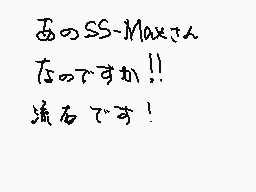 あのSS-Maxさん
なのですか!!
流石です!